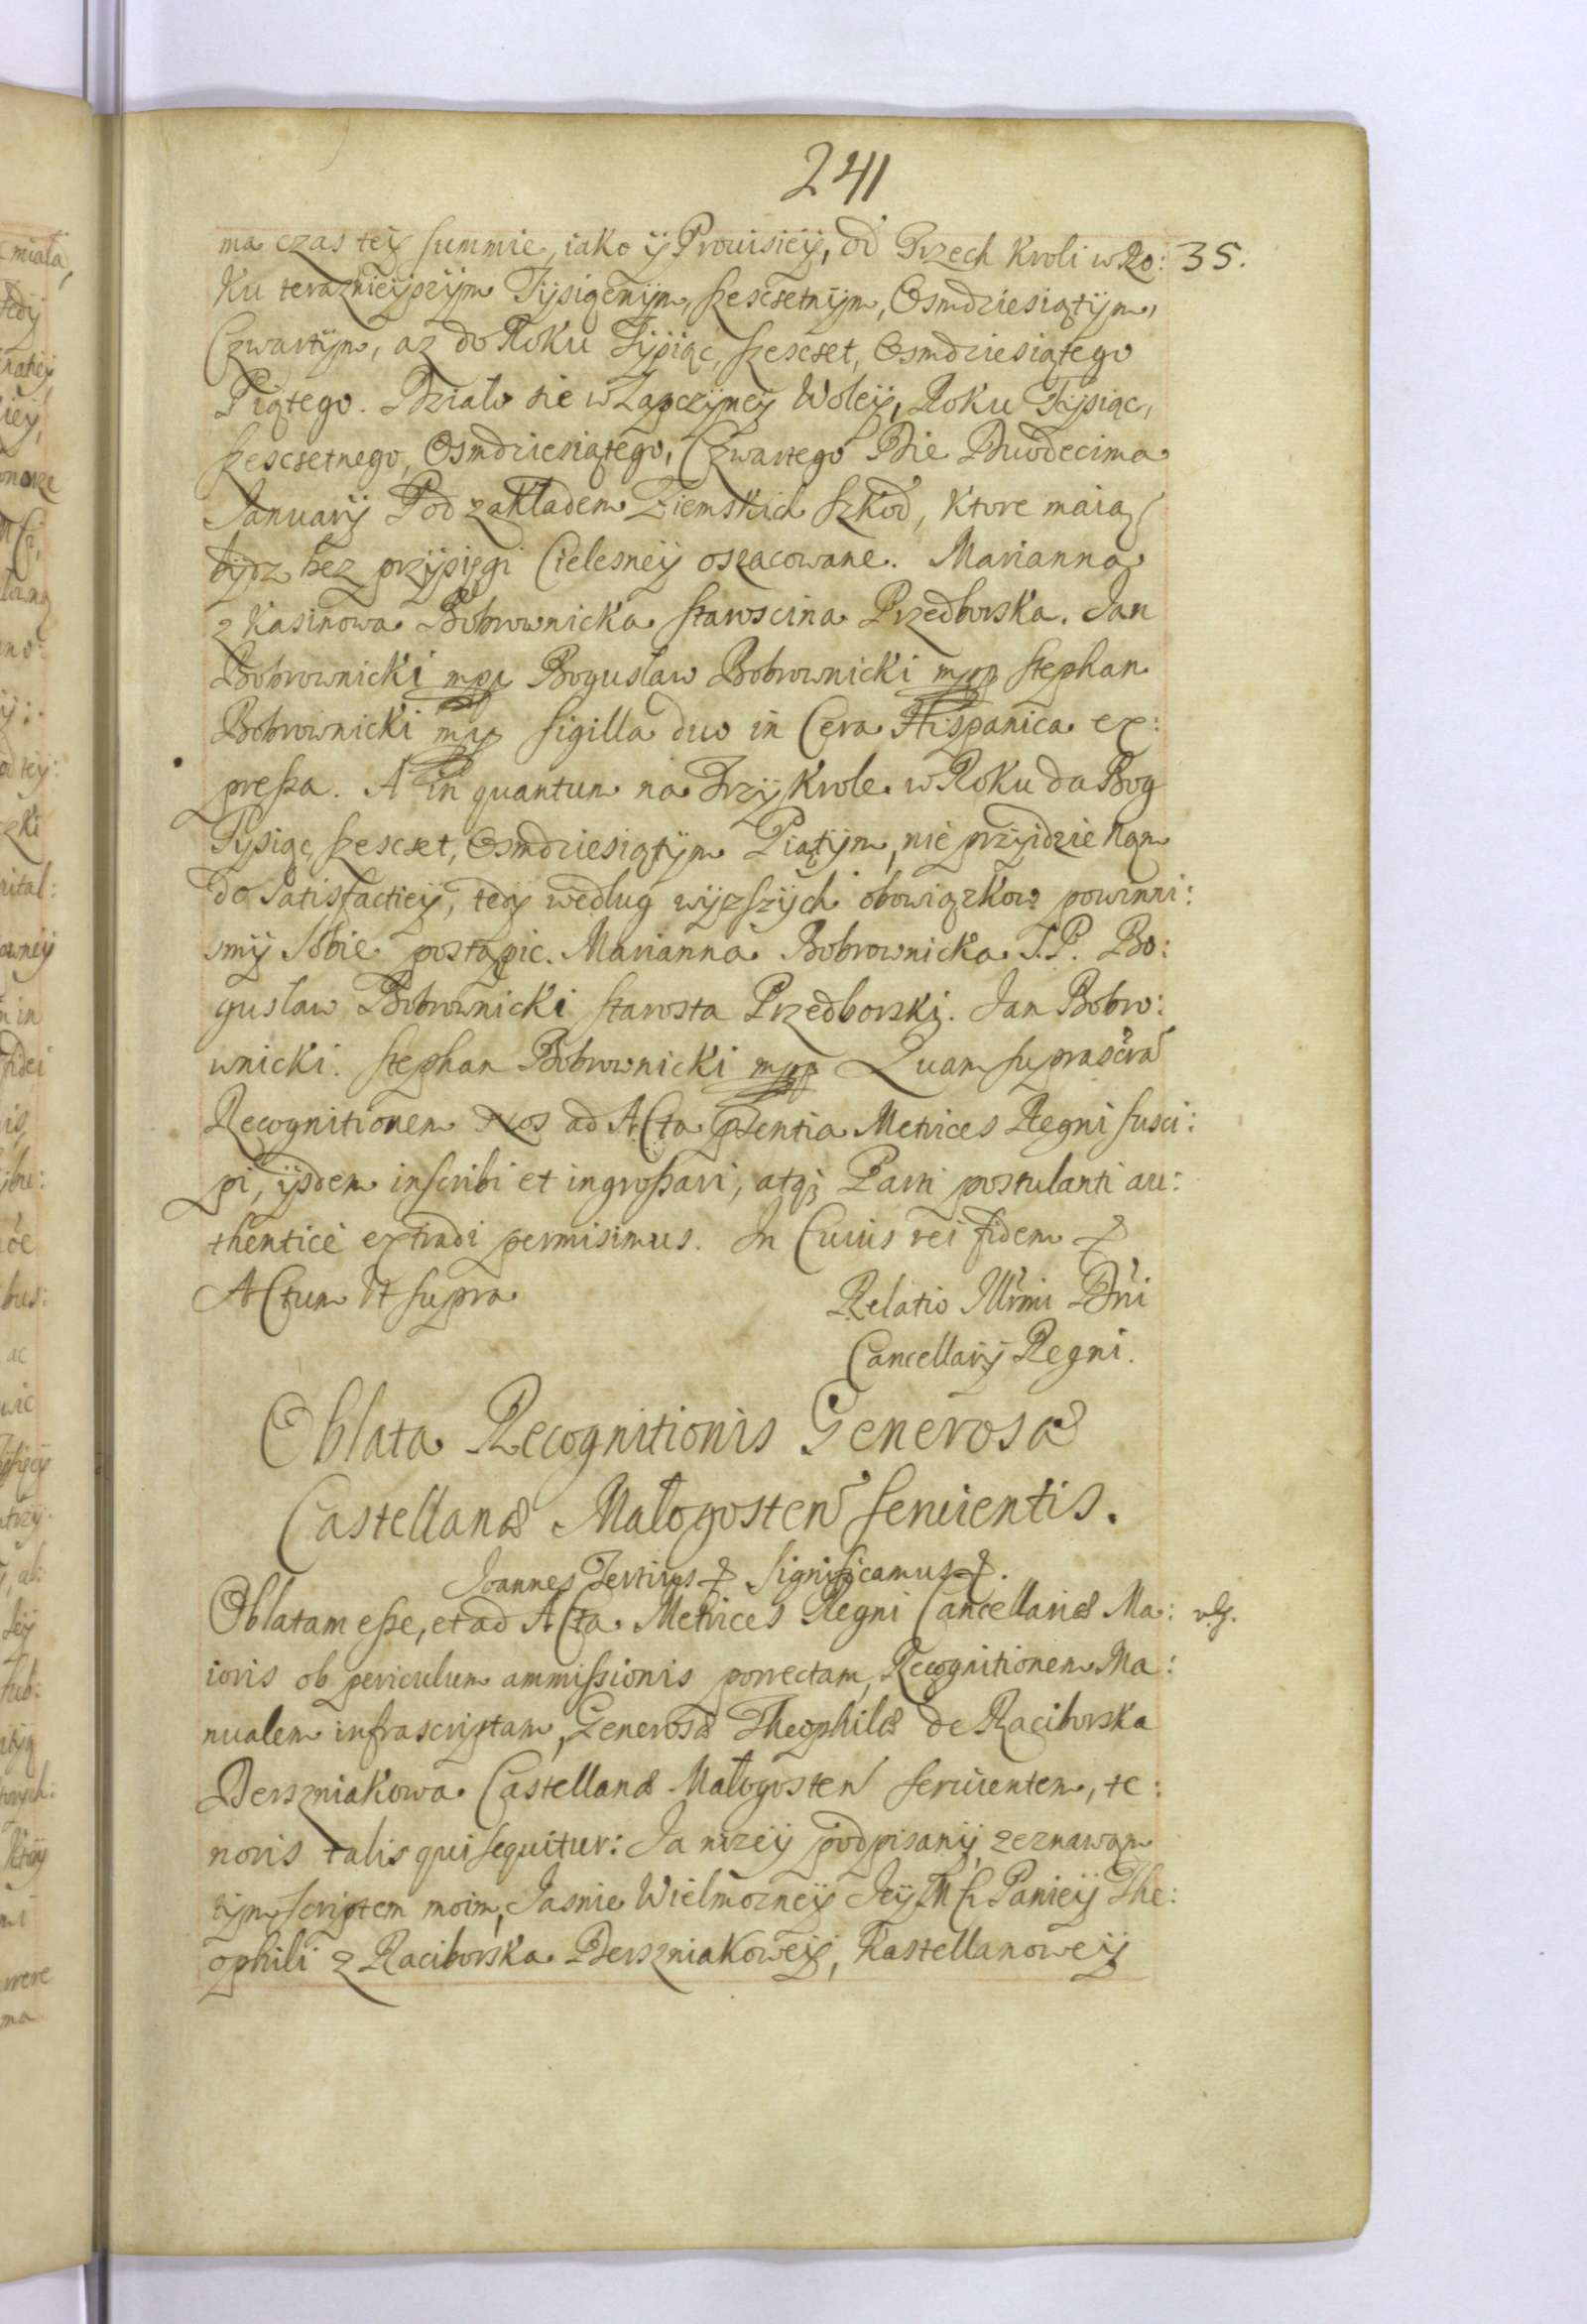 241
ma czas tey summie, iako ÿ Prouisieÿ, od Trzech Kroli w Ro: 35.
Ku teraznieÿszÿm Tÿsiącnÿm, szescsetnÿm, Osmdziesiątÿm,
Czwartÿm, az do Roku Tÿsiąc, szescset, Osmdziesiątego
Piątego. Działo sie w Woleÿ, Roku Tÿsiąc,
szescsetnego, Osmdziesiątego, Czwartego Die Duodecima
Januarÿ Pod zakładem Ziemskich szkod, Ktore maią
bÿdz bez przÿsięgi Cielesneÿ oszacowane. Marianna
z Kasinowa Bobrownicka starościna Przedborska. Jan
Bobrownicki mpp Bogusław Bobrownicki mpp Stephan
Bobrownicki mpp sigilla duo in Cera Hispanica ex:
pressa. A in quantum na Trzÿ Krole w Roku da Bog
Tÿsiąc szescset, Osmdziesiątÿm Piątÿm, nie przÿidzie nąm
do satisfactieÿ, tedy według wÿzszÿch obowiązkow powinni:
smÿ sobie postąpic. Marianna Bobrownicka S.P. Bo:
gusław Bobrownicki starosta Przedborski. Jan Bobro:
wnicki. Stephan Bobrownicki mpp Quam suprascra
Recognitionem Nos ad Acta psentia Metrices Regni susci:
pi, ÿsdem inscribi et ingrossari, atq; Parti postulanti au:
thenticè extradi permisimus. In Cuius rei fidem &
Actum Ut supra Relatio Illrmi Dni
Cancellarÿ Regni.
Oblata Recognitionis Generosæ
Castellanæ Małogosten seruientis.
Joannes Tertius & Significamus &.
Oblatam esse, et ad Acta Metrices Regni Cancellariæ Ma:
ioris ob periculum ammissionis porrectam, Recognitionem Ma:
nualem infrascriptam, Generosæ Theophilæ de Raciborska
Derszniakowa Castellanæ Małogosten seruientem, te:
noris talis qui sequitur: Ja nizeÿ podpisanÿ, zeznawąm
tÿm scriptem moim, Jasnie Wielmozneÿ Jeÿ Mści Panieÿ The:
ophili z Raciborska Derszniakoweÿ, Kastellanoweÿ